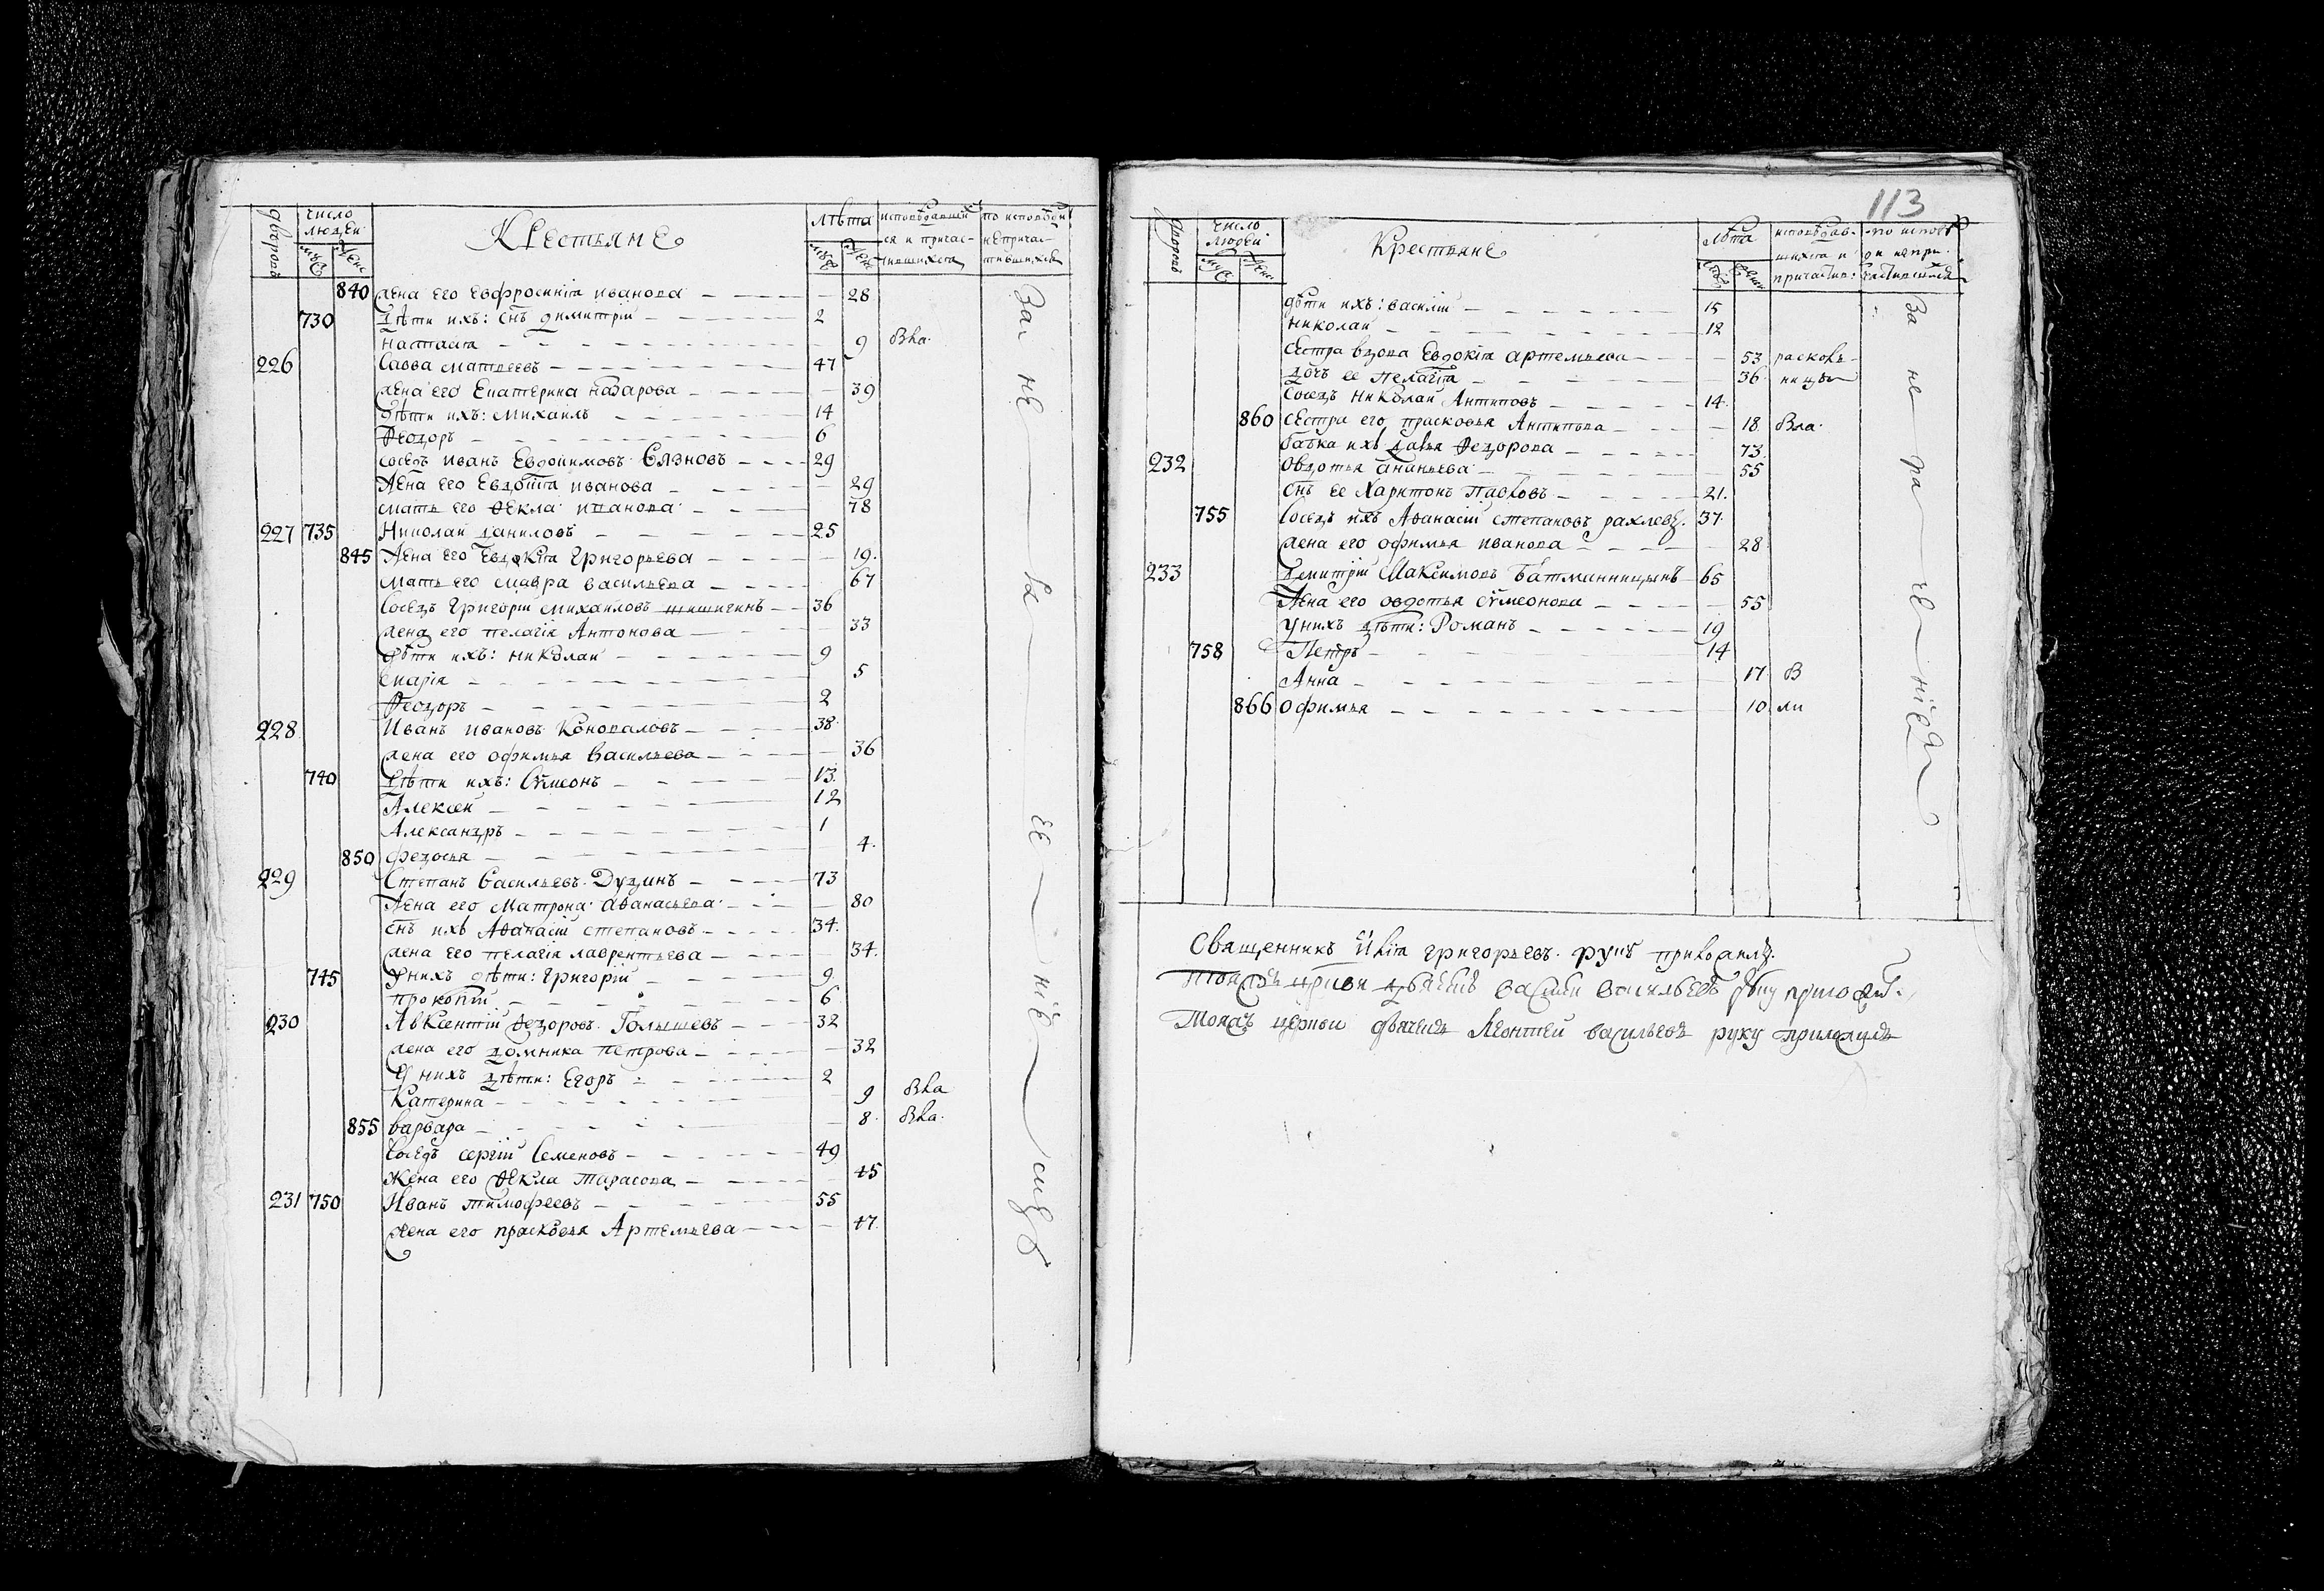 дворовъ
число людей
муж
жен
Крестьяне
лѣта
муж
жен
исповѣдавшихся и причастившихся
по исповѣди не причастившихся
840 жена его Евфросинія иванова 28
730 Дѣти ихъ: снъ димитрій 2
настасія 9
226 Савва матѳеевъ 47
жена его Екатерина назарова 39
дѣти ихъ: михаилъ 14
Ѳеодоръ 6
сосѣдъ иванъ Евдокимовъ 29
жена его Евдокія иванова 29
мать его ѳекла иванова 78
227 735 Николай даниловъ 25
845 жена его Евдокія григорьева 19.
мать его мавра васильева 67
Сосѣдъ григорій михаиловъ шишигинъ 36
жена его пелагія Антонова 33
дѣти ихъ: николай 9
марія 5
Ѳеодоръ 2
228 Иванъ ивановъ Коноваловъ 38
жена его офимья васильева 36
740 дѣти ихъ: Сѵмеонъ 13.
Алексей 12
Александръ 1
850 федосья 4.
229 Степанъ васильевъ Дудинъ 73
жена его матрона аѳанасьева 80
снъ ихъ Аѳанасій степановъ 34.
жена его пелагія лаврентьева 34.
745 Унихъ дѣти: григорій 9
прокопій 6
230 Авксентій Ѳедоровъ Голышевъ 32
жена его домника петрова 32
У нихъ дѣти: Егоръ 2
Катерина 9
855 варвара 8
Сосѣдъ сергій Семеновъ 49
Жена его ѳекла тарасова 45
231 750 Иванъ тимофеевъ 55
жена его прасковья Артемьева 47
За не
113
дворовъ
число людей
муж
жен
Крестьяне
лѣта
дѣти ихъ: василій 15
николай 12
сестра вдова Евдокія артемьева 53 расколь-
дочь ее пелагія 36 ницы
Сосѣдъ николай Антиповъ 14
860 сестра его прасковья Антипова 18
бабка ихъ дарья Ѳедорова 73
232 Овдотья ананьева 55
снъ ее Харитонъ павловъ 21.
755 Сосѣдъ ихъ Аѳанасій степановъ 37
жена его офимья иванова 28
233 димитрій Максимовъ 65
жена его овдотья сѵмеонова 55
унихъ дѣти: Романъ 19
758 Петръ 14
Анна 17
866 офимья 10
За не ра че ніемъ
Священникъ Илія григорьевъ руку приложилъ.
Тояжъ церкви дьячекъ василей васильевъ руку приложилъ.
Тояжъ церкви дьячекъ Леонтей васильевъ руку приложилъ